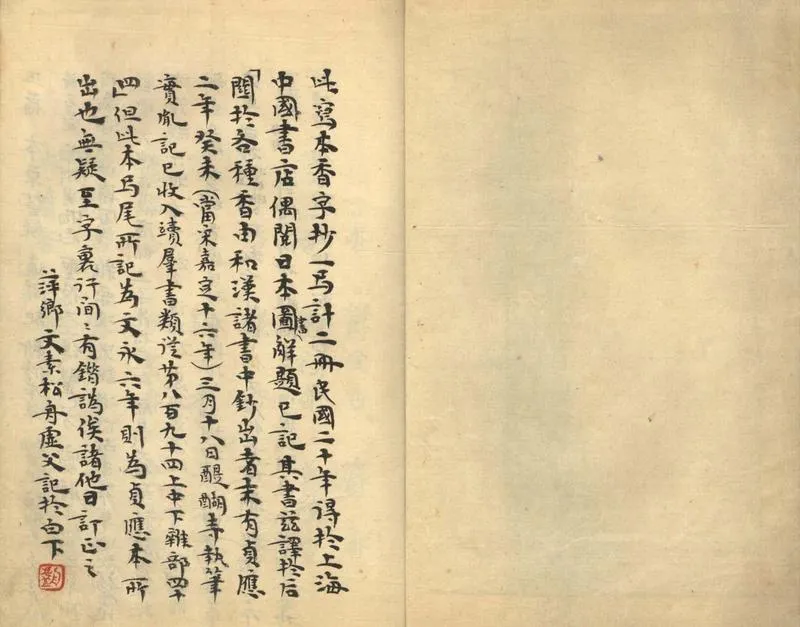 此寫本香字抄一号計二冊民國二十年得於上海
中國書店偶閱日本圖書解題已記其書茲譯於后
「關於各種香由和漢諸書中鈔出者末有貞應
二年癸未(當宋嘉定十六年)三月十八日醍醐寺執筆
實胤記已收入續羣書類從第八百九十四上中下雜部四十
四」但此本号尾所記為文永六年則為貞應本所
出也無疑至字裏行間間有錯譌俟諸他日訂正之
萍鄉文素松舟虛父記於白下